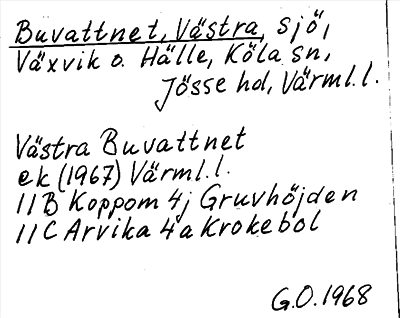 Buvattnet, Västra, sjö,
Växvik o. Hälle, Köla sn,
Jösse hd, Värml.l.
Västra Buvattnet
ek (1967) Värml.l.
11B Koppom 4j Gruvhöjden
11C Arvika 4a Krokebol
G.O.1968